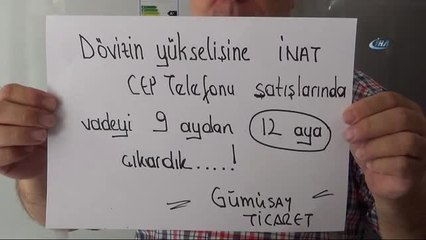 Dövizin yükselişine İNAT
CEP Telefonu satışlarında
vadeyi 9 aydan 12 aya
çıkardık.....!
Gümüşay
TİCARET
İHA